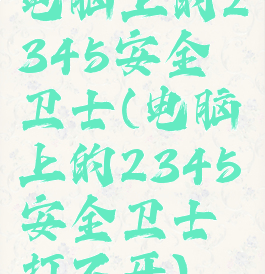 电脑上的2
345安全
卫士(电脑
上的2345
安全卫士
打不开)